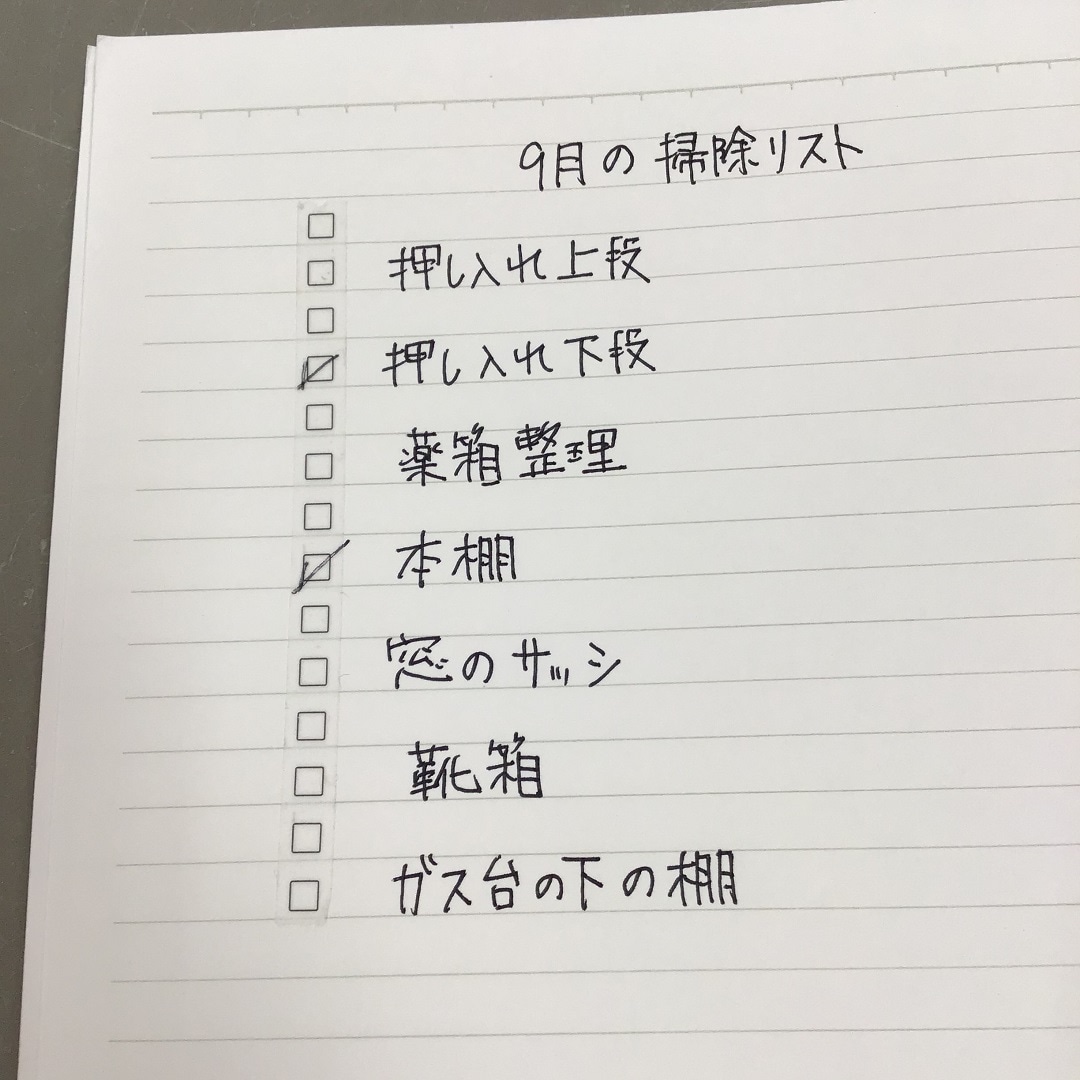 9月の掃除リスト
押し入れ上段
押し入れ下段
薬箱整理
本棚
窓のサッシ
靴箱
ガス台の下の棚